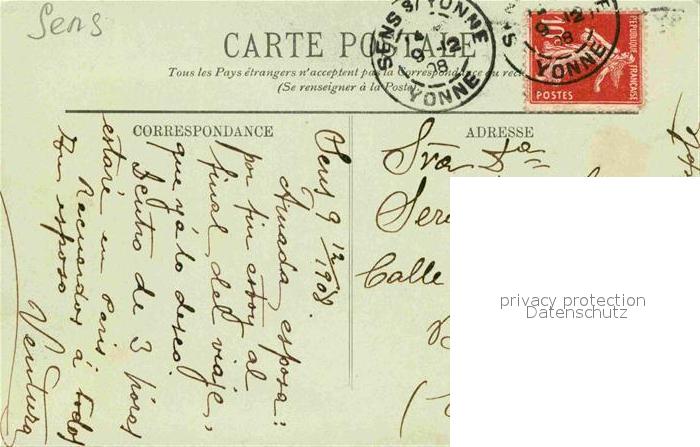 Sens
CARTE POSTALE
Tous les Pays étrangers n'acceptent pas la Correspondance au recto
(Se renseigner à la Poste).
SENS S/ YONNE
9 - 12
08
YONNE
10
REPUBLIQUE FRANÇAISE
POSTES
CORRESPONDANCE
ADRESSE
Sens 9 12/1908.
Amada esposa:
por fin estoy al
final del viaje,
que ya lo deseo.
Dentro de 3 horas
estaré en Paris
Recuerdos á todos
tu esposo
Ventura
Sra Da
Calle
privacy protection
Datenschutz